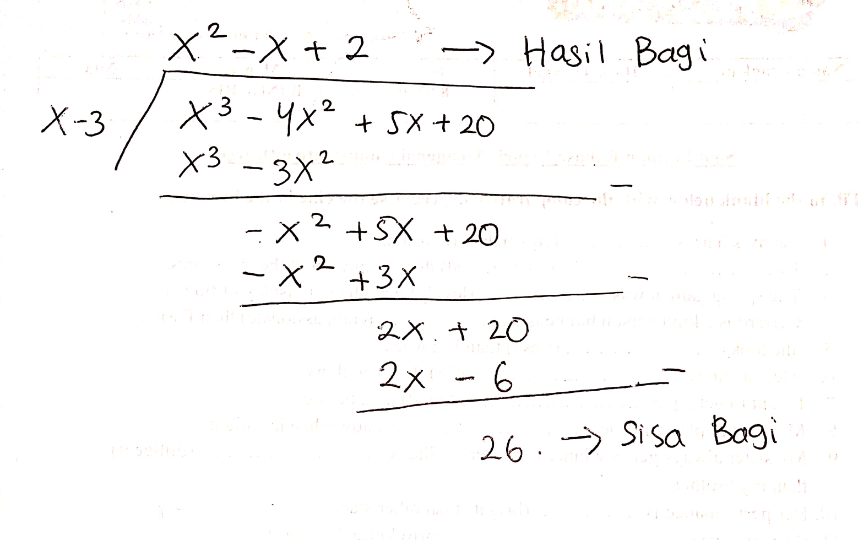 x² - x + 2 → Hasil Bagi
x-3 / x³ - 4x² + 5x + 20
x³ - 3x² -
- x² + 5x + 20
- x² + 3x -
2x + 20
2x - 6 -
26. → Sisa Bagi